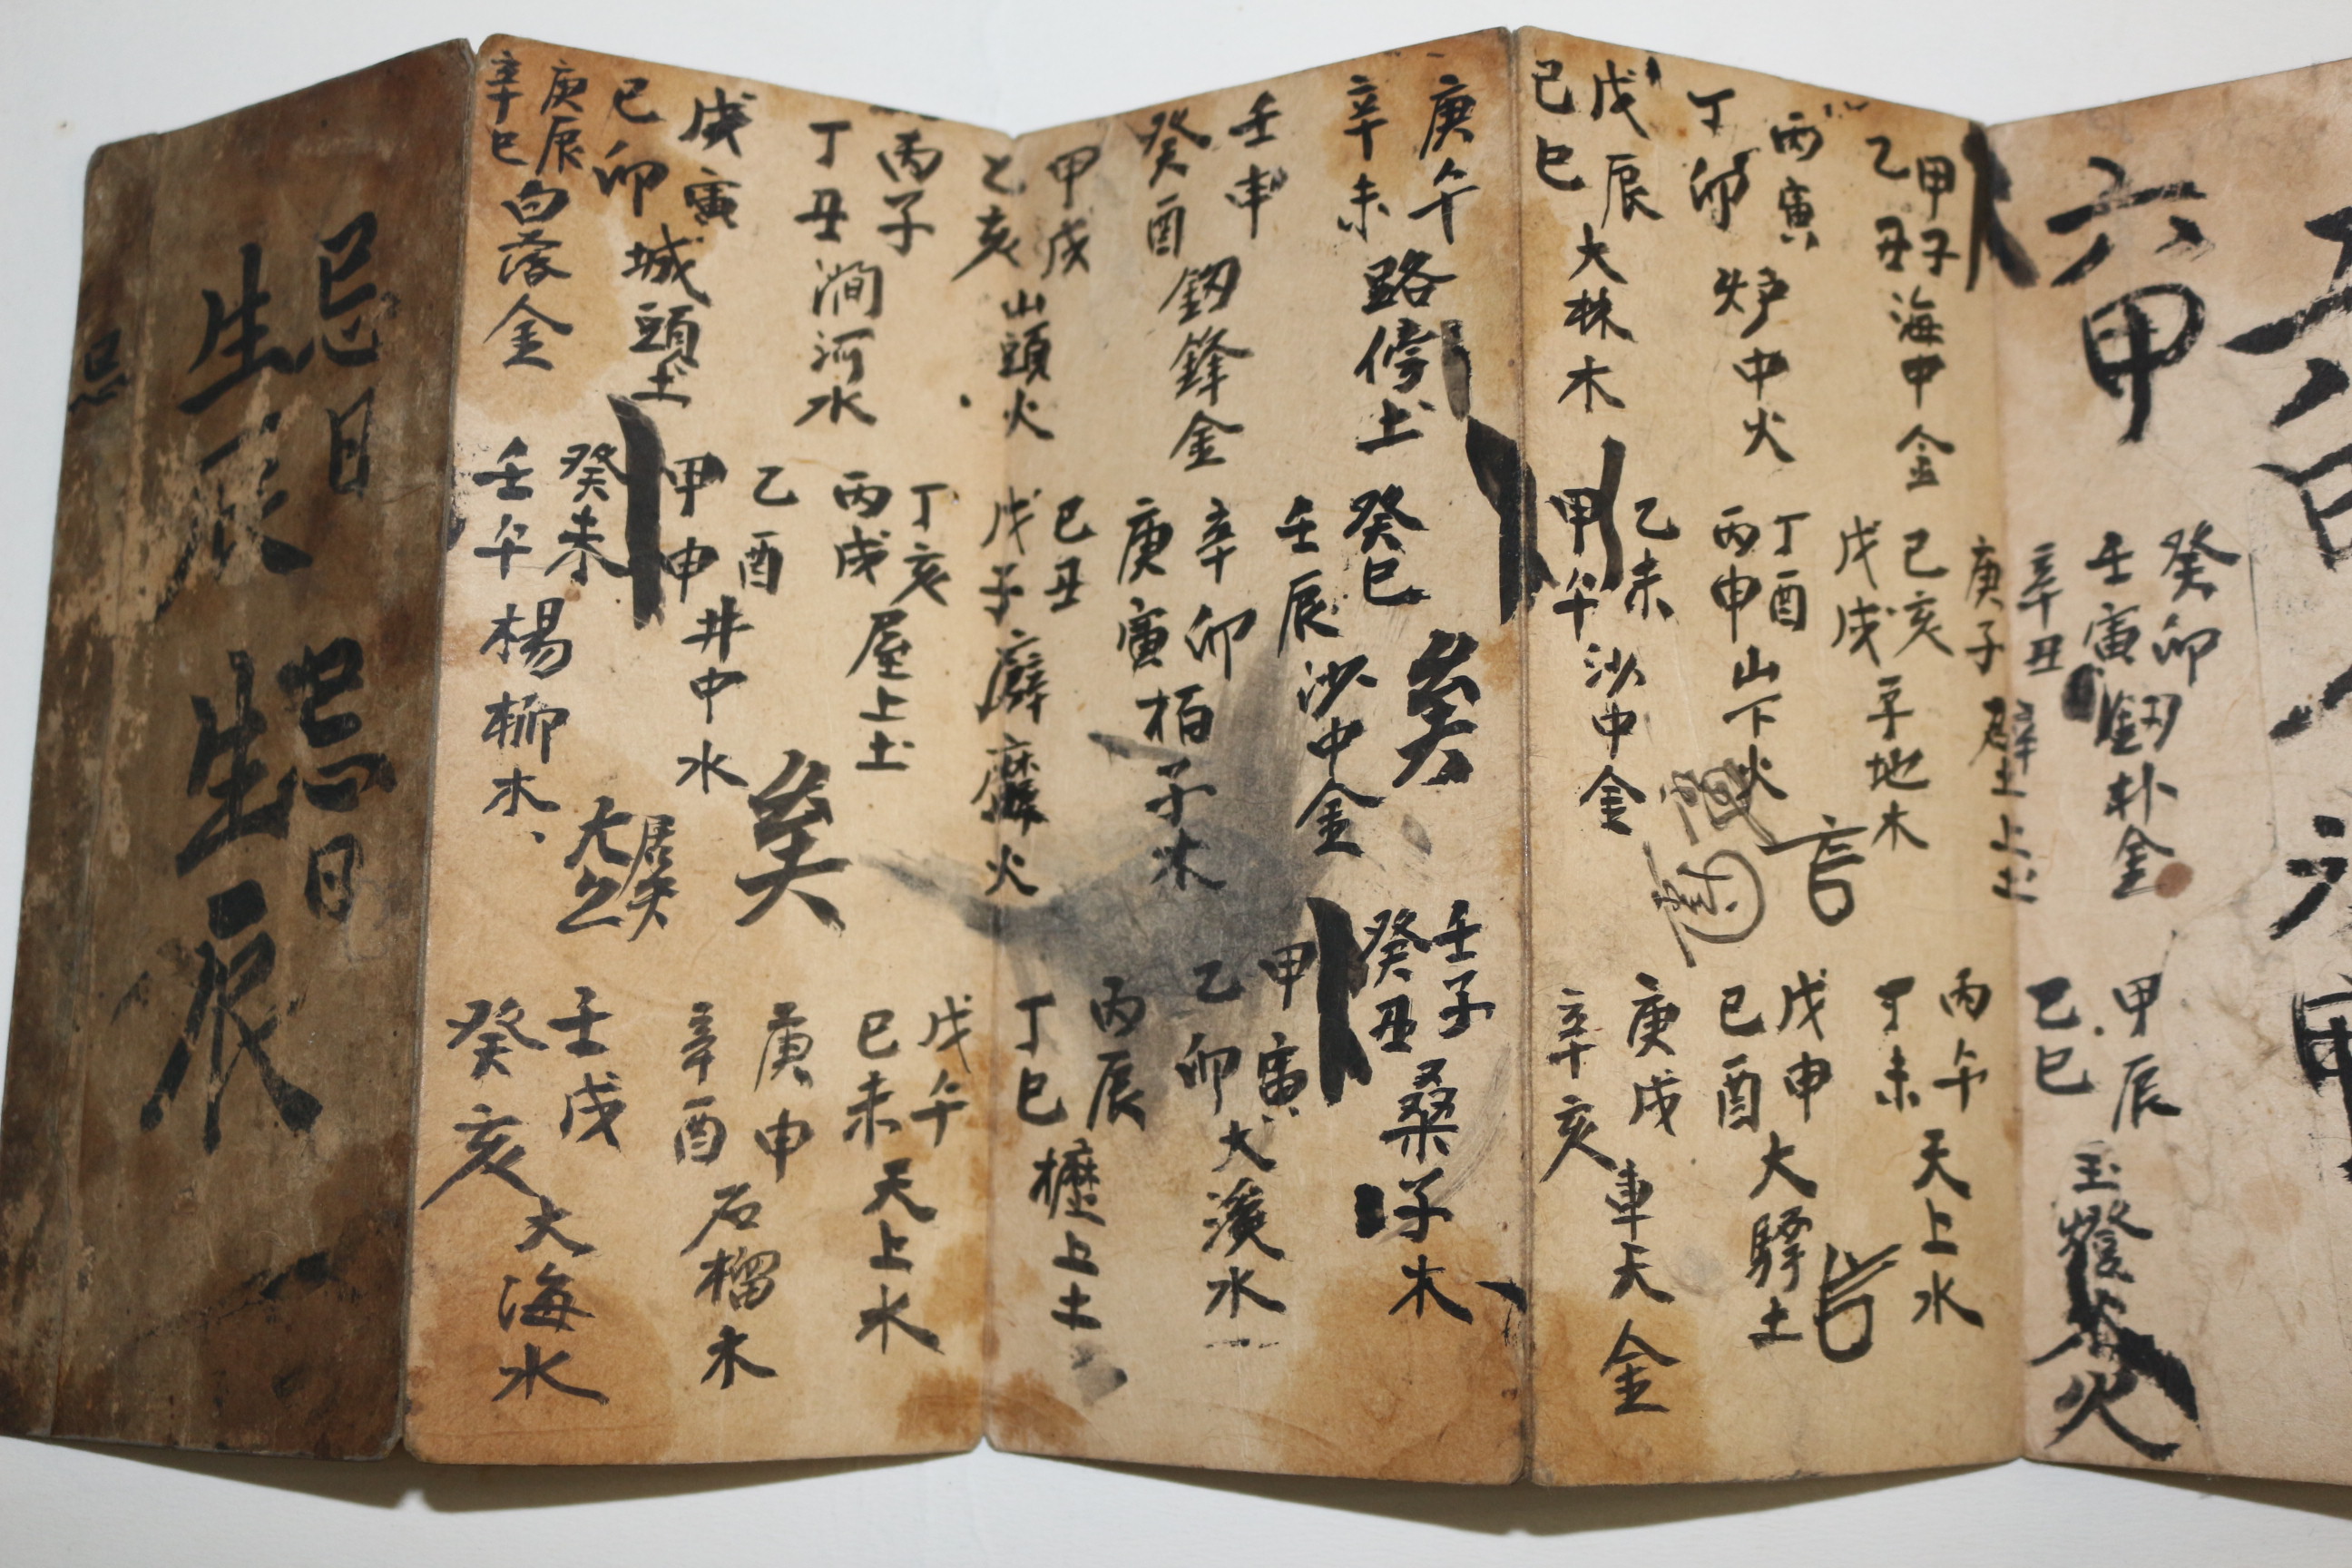 六甲
甲子
乙丑
海中金
丙寅
丁卯
炉中火
戊辰
己巳
大林木
庚午
辛未
路傍土
壬申
癸酉
釰鋒金
甲戌
乙亥
山頭火
丙子
丁丑
澗河水
戊寅
己卯
城頭土
庚辰
辛巳
白落金
壬午
癸未
楊柳木
甲申
乙酉
井中水
丙戌
丁亥
屋上土
戊子
己丑
火
庚寅
辛卯
栢子木
壬辰
癸巳
沙中金
甲午
乙未
沙中金
丙申
丁酉
山下火
戊戌
己亥
平地木
庚子
辛丑
壁上土
壬寅
癸卯
釰朴金
甲辰
己巳
玉燈火
丙午
丁未
天上水
戊申
己酉
大驛土
庚戌
辛亥
車天金
壬子
癸丑
桑子木
甲寅
乙卯
大溪水
丙辰
丁巳
上土
戊午
己未
天上水
庚申
辛酉
石榴木
壬戌
癸亥
大海水
矣
矣
言
忌日 忌日
生辰 生辰
忌